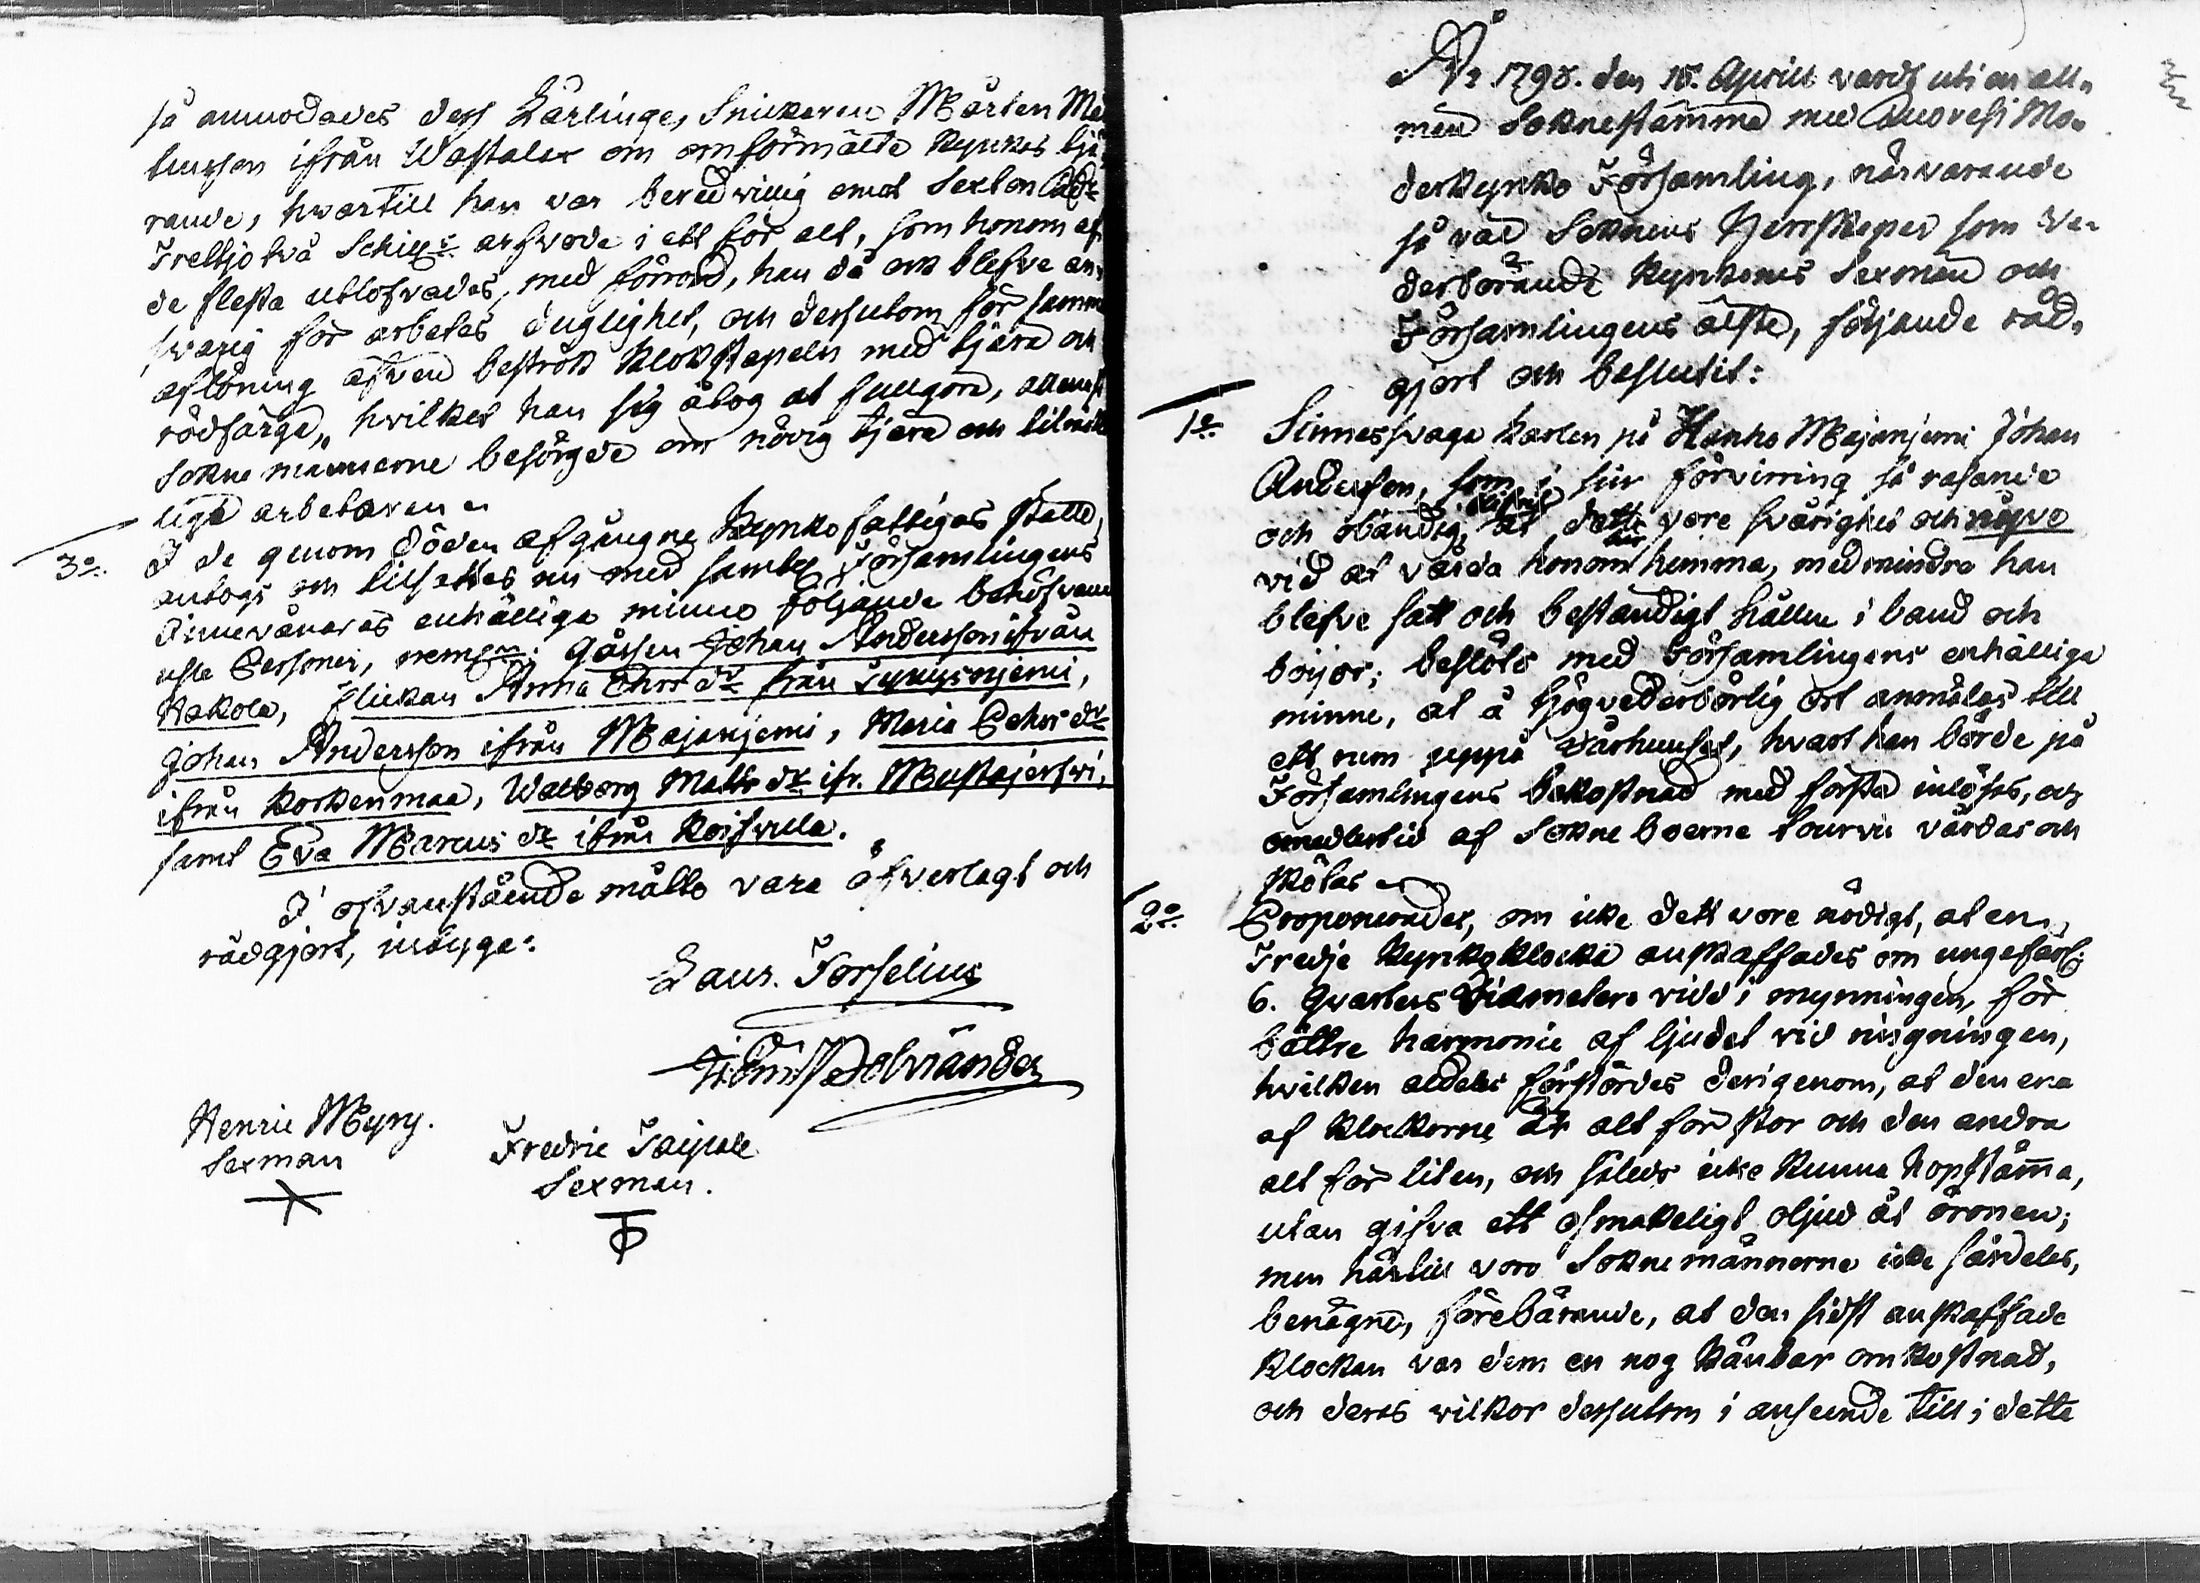 så anmodades dess Lärlinge, Snickaren Mårten
ifrån Wastaler om omförmälte Kyrkos
rande, hwartill han var beredwillig emot Sexton
Trettjotvå Schill:r arfvode i ett för alt, som honom af
de flesta utlofvades, med förord, han då ock blefve an-
svarig för arbetes duglighet, och dessutom för samma
aflöning äfven beströk klokstapeln med tjära och
rödfärga, hwilket han sig åtog at fullgöra,
Sokne männerne besörgde om nödig tjära och
lige arbetaren.
3:o I de genom döden afgångne Kyrko fattigas ställe,
antogs och tillsattes nu med samtel. Församlingens
Innevånares enhälliga minne följande behöfvan
uste Personer, neml:n: gåssen Johan Andersson ifrån
Hakola, flickan Anna Ehrs d:r från Syrysniemi,
Johan Andersson ifrån Majaniemi, Maria Pehrs d:r
ifrån Korkenmaa, Walborg Matts d:r ifr. Mustajerfwi,
samt Eva Marcus d:r ifrån Koiswilla.
I ofvanstående måtto vara öfverlagt och
rådgjort, intyga:
Laur. Forselius
Polviander
Henric Myry.
Sexman
Fredric Taipale
Sexman.
År 1798. den 15. Aprill vardt uti en all-
män Soknestämma med Moder-
derkyrko Församling, närvarande
så väl Soknens Herrskaper som ve-
derbörande Kyrkones Sexmän och
Församlingens älste, följande råd-
gjort och beslutit:
1:o Sinnessvaga karlen på Hanho Majaniemi Johan
Andersson, som i sin förvirring så rasande
och obändig, at dett vore svårighet och
vid at vårda honom hemma, med mindre han
blefve satt och beständigt hållen i band och
bojor; beslöts med Församlingens enhälliga
minne, at å högvederbörlig ort anmälas till
ett rum uppå Dårhuuset, hvart han börde på
Församlingens bekostnad med första inlösas, och
emedlertid af Sokne boerne tourvis vårdas och
skötas.
2:o Proponerades, om icke dett vore nödigt, at en
Tredje Kyrko klocka anskaffades om ungefärl:
6. qvarters Diameters vidd i mynningen, för
bättre harmonie af ljudet vid ringningen,
hvilken aldeles förstördes derigenom, at den ena
af klockorne är alt för stor och den andra
alt för liten, och således icke kunna hopstäma,
utan gifva ett osmakeligt oljud åt öronen;
men härtill voro Soknemännerne icke särdeles,
benägne, förebärande, at den sidst anskaffade
klockan var dem en nog känbar omkostnad,
och deras vilkor dessutom i anseende till i dette